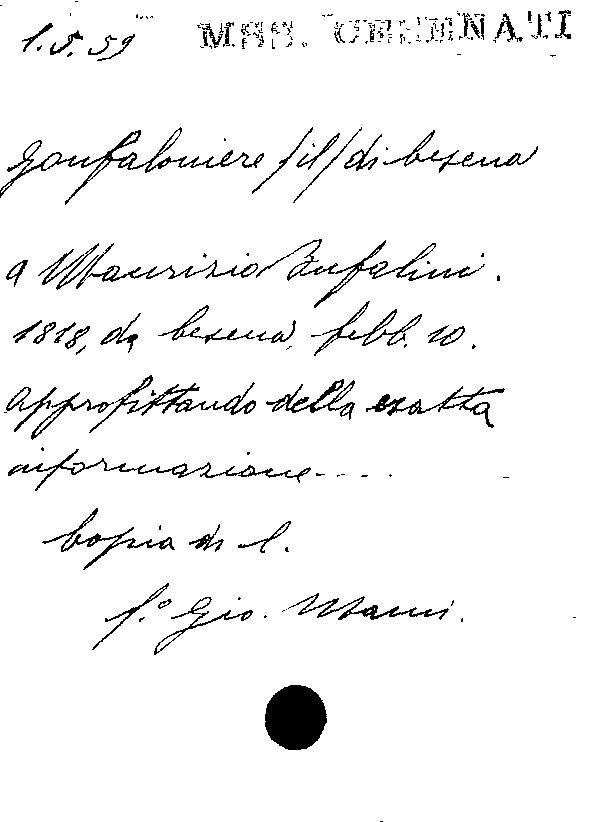 1.5.59 MSS. CESENATI
Gonfaloniere /il/ di Cesena
a Maurizio Bufalini.
1818, da Cesena, febb. 10.
Approfittando della esatta
informazione....
Copia di l.
f.° Gio. Manni.